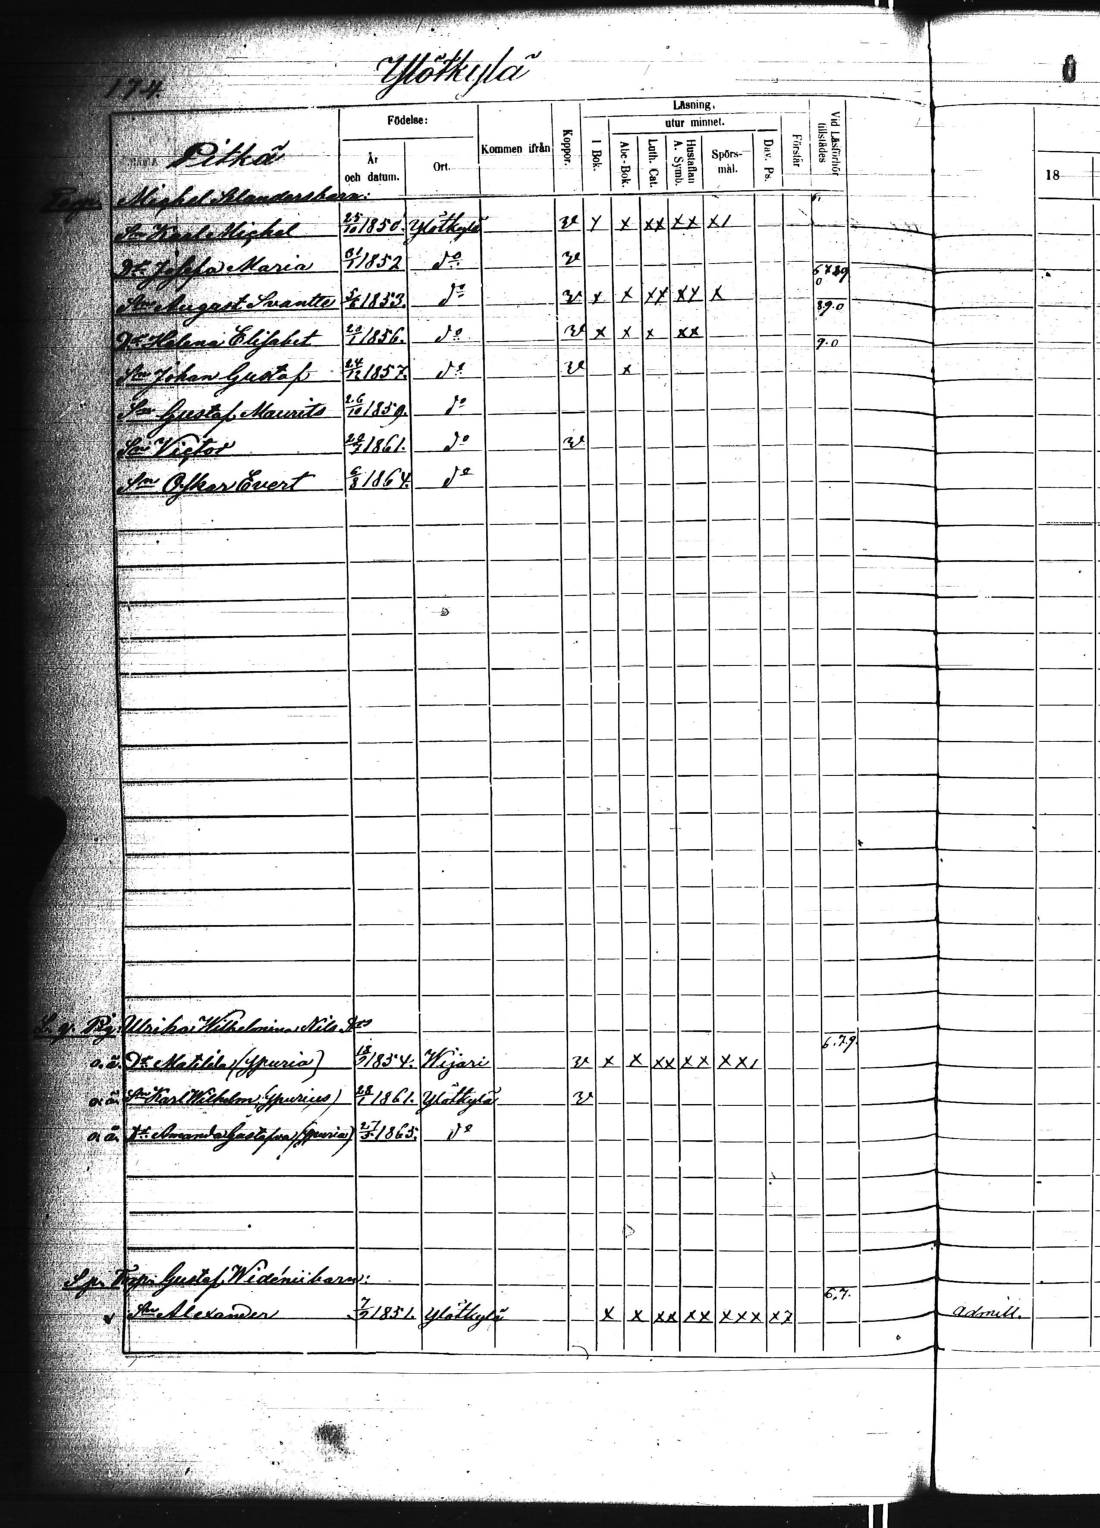 174.
Ylötkylä
Födelse:
Läsning,
utur minnet.
Kommen ifrån
Koppor.
I Bok.
Abc-Bok.
Luth. Cat.
Hustaflan A. Symb.
Spörsmål.
Dav. Ps.
Förstår
Vid Läsförhör tillstädes
År och datum.
Ort.
18
Pitkä
Michel barn:
Sn Karl Michel 25/10 1850 Ylötkylä v x xx xx x/
Dr Josefa Maria /1 1852 do v
Sn August Svante 5/ 1853. do v x x xx xx x
Dr Helena Elisabet /1 1856. do v x x x xx
Sn Johan Gustaf 24/12 1857. do v x
Sn Gustaf Maurits 26/10 1859. do
Sn Victor 1861. do v
Sn Oskar Evert 6/8 1864. do
Ulrika Wilhelmina Nils Dr
6.7.9.
o.ä. Dr Matilda (spuria) 1854. Wijari v x x xx xx xx/
o.ä. Sn Karl Wilhelm (spurius) 28/1 1861. Ylötkylä v
o.ä. Dr Amanda Gustafva (spuria) 27/5 1865. do
Gustaf Widénii barn:
6.7.
Sn Alexander 1851. Ylötkylä x x xx xx xxx x7 admitt.